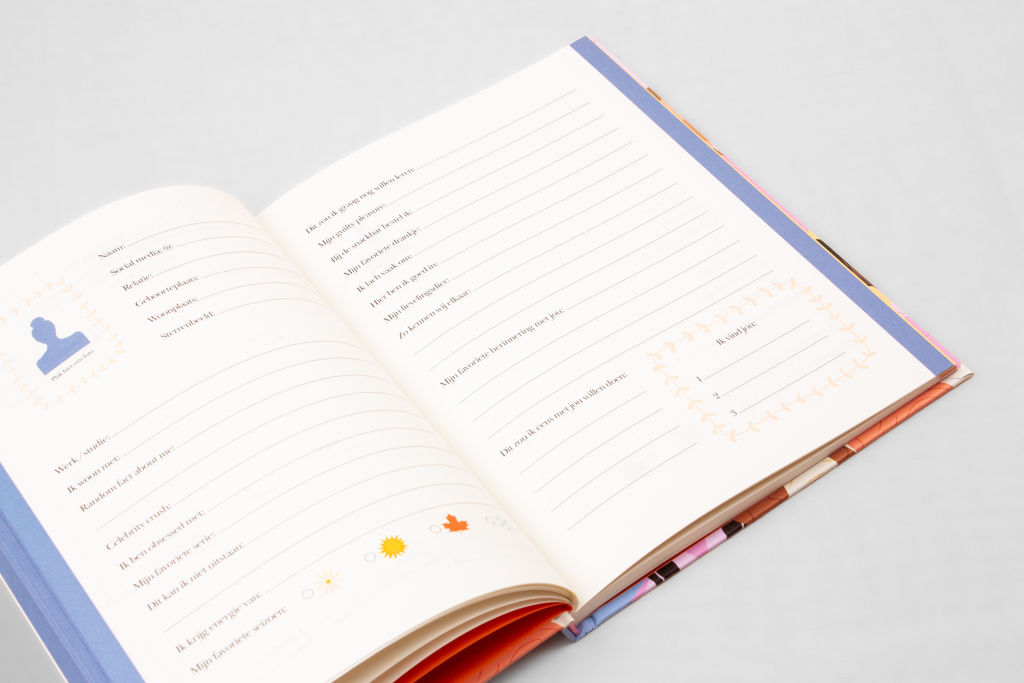 Naam:
Social media: @
Relatie:
Geboorteplaats:
Woonplaats:
Sterrenbeeld:
Plak hier een foto
Werk/studie:
Ik woon met:
Random fact about me:
Celebrity crush:
Ik ben obsessed met:
Mijn favoriete serie:
Dit kan ik niet uitstaan:
Ik krijg energie van:
Mijn favoriete seizoen:
Dit zou ik graag nog willen leren:
Mijn guilty pleasure:
Bij de snackbar bestel ik:
Mijn favoriete drankje:
Ik lach vaak om:
Hier ben ik goed in:
Mijn lievelingsdier:
Zo kennen wij elkaar:
Mijn favoriete herinnering met jou:
Dit zou ik eens met jou willen doen:
Ik vind jou:
1
2
3